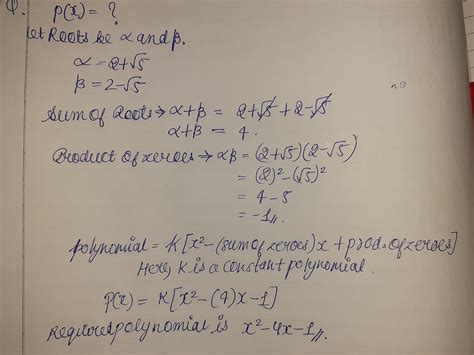 Q. P(x) = ?
let Roots be α and β.
α = 2+√5
β = 2-√5
Sum of Roots → α+β = 2+√5 + 2-√5
α+β = 4.
Product of zeroes → αβ = (2+√5)(2-√5)
= (2)²-(√5)²
= 4 - 5
= -1,,
polynomial = K[x²-(sum of zeroes)x + prod. of zeroes]
Here, K is a constant polynomial.
P(x) = K[x²-(4)x-1]
Required polynomial is x²-4x-1,,.